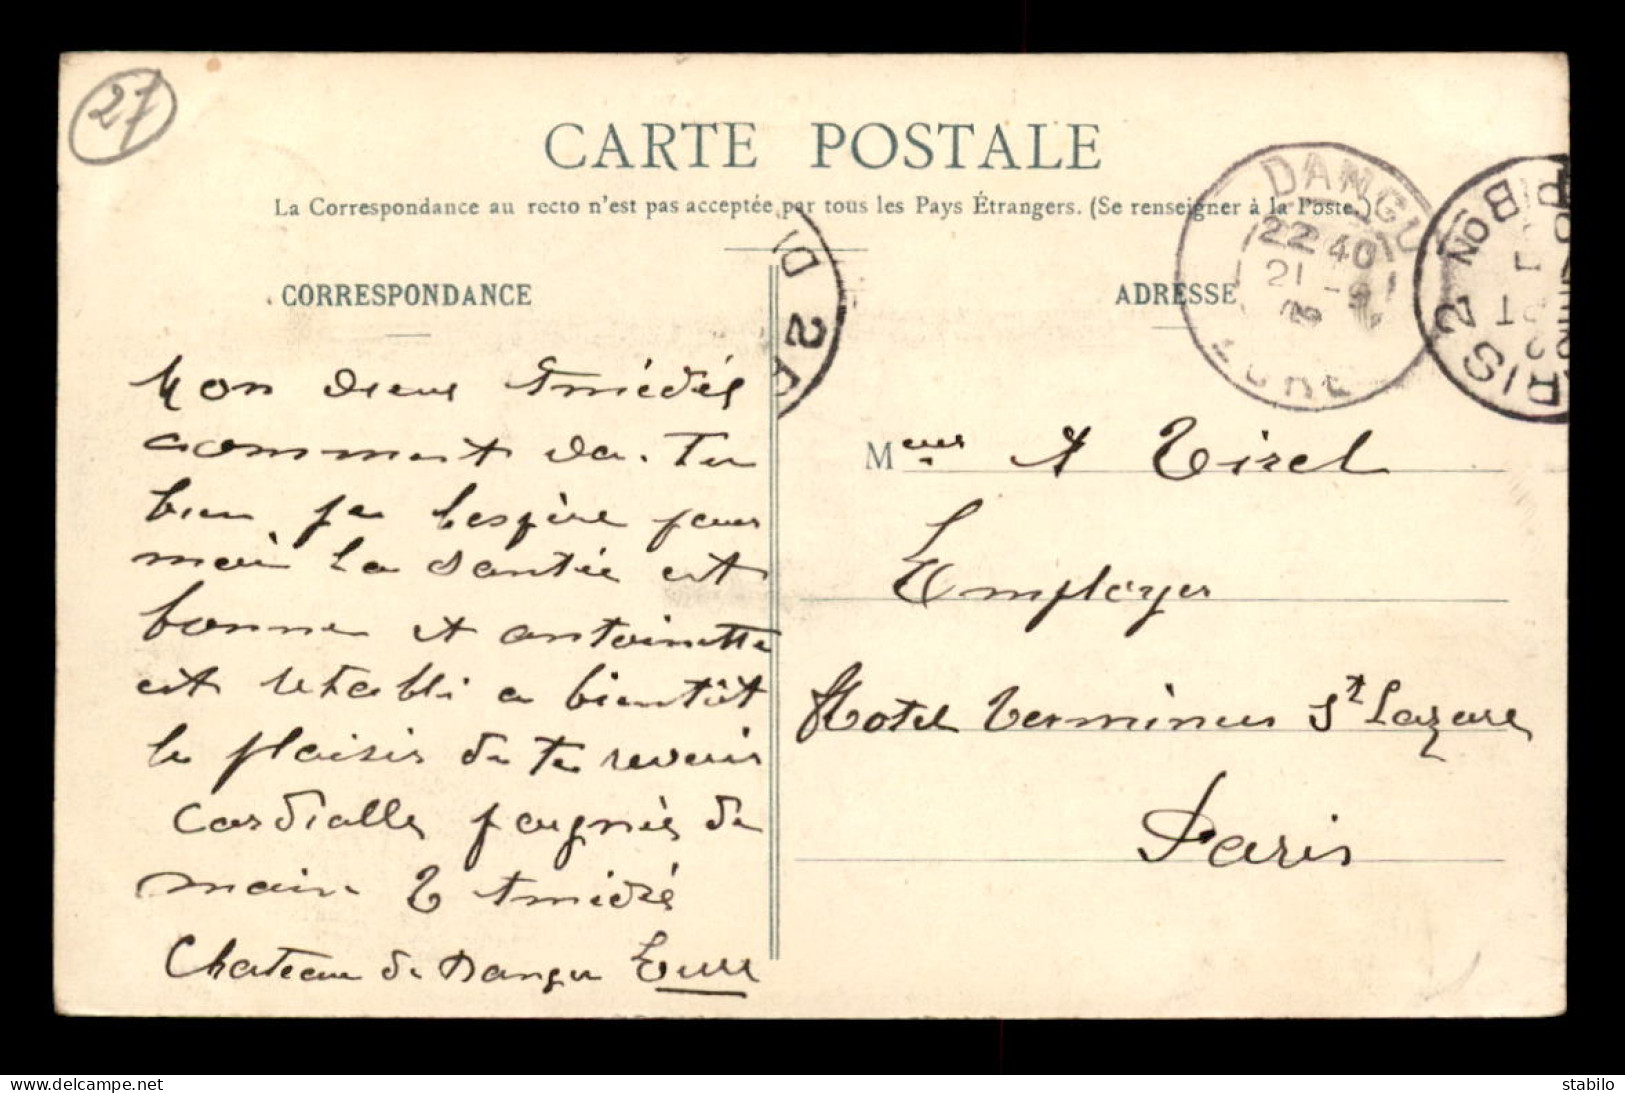 27
CARTE POSTALE
La Correspondance au recto n'est pas acceptée par tous les Pays Étrangers. (Se renseigner à la Poste.)
CORRESPONDANCE
Mon vieux Amédés
comment va. Tu
bien je lespère pour
moi la santée est
bonne et antoinette
est retabli a bientôt
le plaisir de te revoir
Cordialles poignés de
main
Chateau de Dangu Eure
ADRESSE
DANGU
22 40
21 - 9
EURE
PARIS 2 BON
DI 2
Meur A Tirel
Employer
Hotel Terminus St Lazare
Paris
www.delcampe.net
stabilo